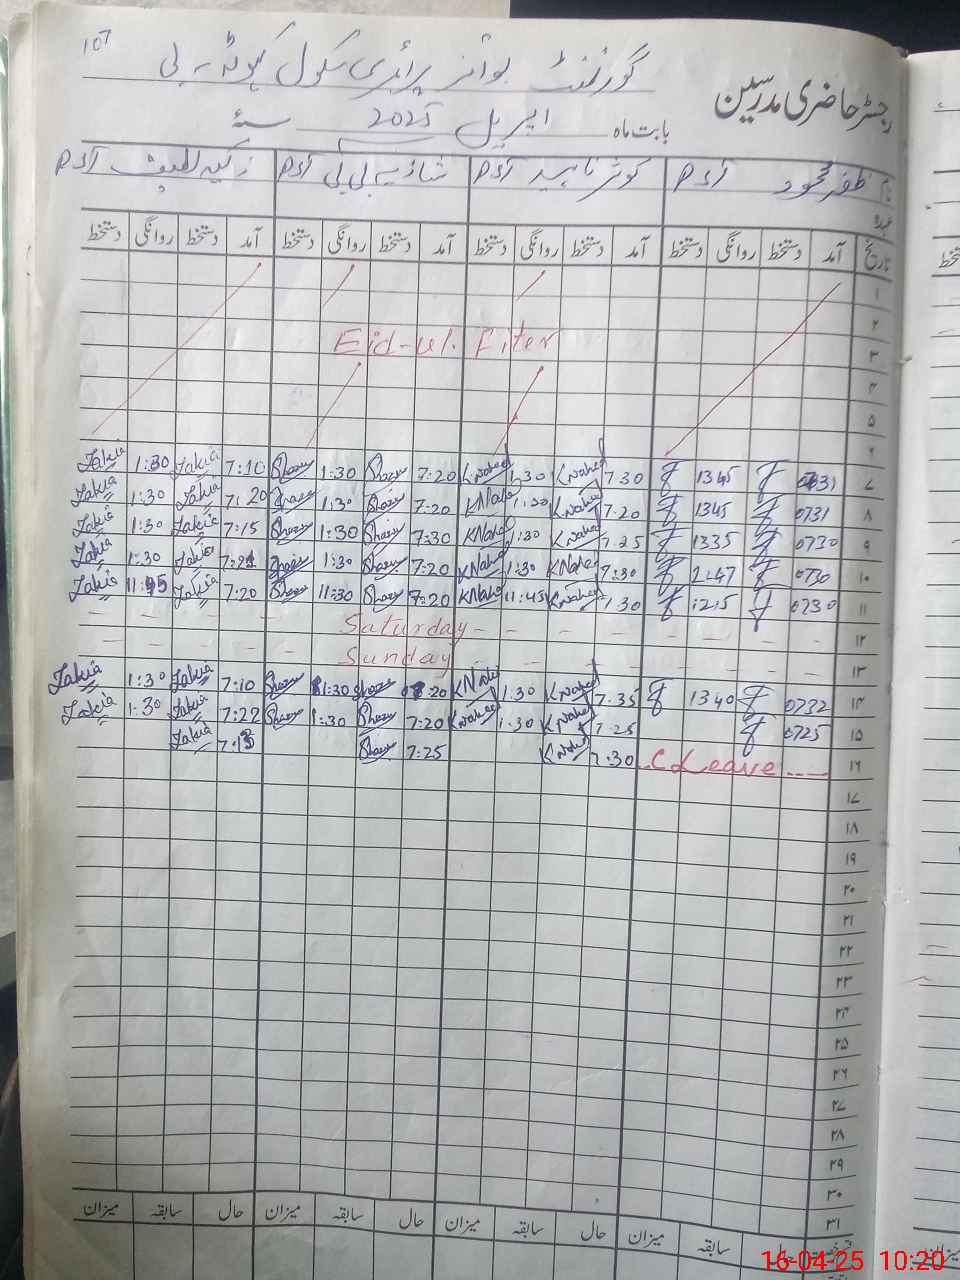 107
رجسٹر حاضری مدرسین
گورنمنٹ بوائز پرائمری سکول
بابت ماہ اپریل 2025 سنہ
نام ظفر محمود PST کوثر ناہید PST شازیہ بی بی PST زکیہ لطیف PST
عہدہ
تاریخ آمد دستخط روانگی دستخط آمد دستخط روانگی دستخط آمد دستخط روانگی دستخط آمد دستخط روانگی دستخط
۱
۲
Eid-ul-Fiter
۳
۴
۵
۶
Zakia 1:30 Zakia 7:10 Shazu 1:30 Shazu 7:20 KNahed 1:30 KNahed 7:30 1345 0731 ۷
Zakia 1:30 Zakia 7:20 Shazu 1:30 Shazu 7:20 KNahed 1:30 KNahed 7:20 1345 0731 ۸
Zakia 1:30 Zakia 7:15 Shazu 1:30 Shazu 7:30 KNahed 1:30 KNahed 7:25 1335 0730 ۹
Zakia 1:30 Zakia 7:21 Shazu 1:30 Shazu 7:20 KNahed 1:30 KNahed 7:30 0730 ۱۰
Zakia 11:45 Zakia 7:20 Shazu 11:30 Shazu 7:20 KNahed 11:45 KNahed 7:30 1215 0730 ۱۱
Saturday ۱۲
Sunday ۱۳
Zakia 1:30 Zakia 7:10 Shazu 1:30 Shazu 7:20 KNahed 1:30 KNahed 7:35 1340 0732 ۱۴
Zakia 1:30 Zakia 7:22 Shazu 1:30 Shazu 7:20 KNahed 1:30 KNahed 7:25 0725 ۱۵
Zakia 7:15 Shazu 7:25 KNahed 7:30 C Leave ۱۶
۱۷
۱۸
۱۹
۲۰
۲۱
۲۲
۲۳
۲۴
۲۵
۲۶
۲۷
۲۸
۲۹
۳۰
۳۱
حال سابقہ میزان حال سابقہ میزان حال سابقہ میزان حال سابقہ میزان
16-04-25 10:20